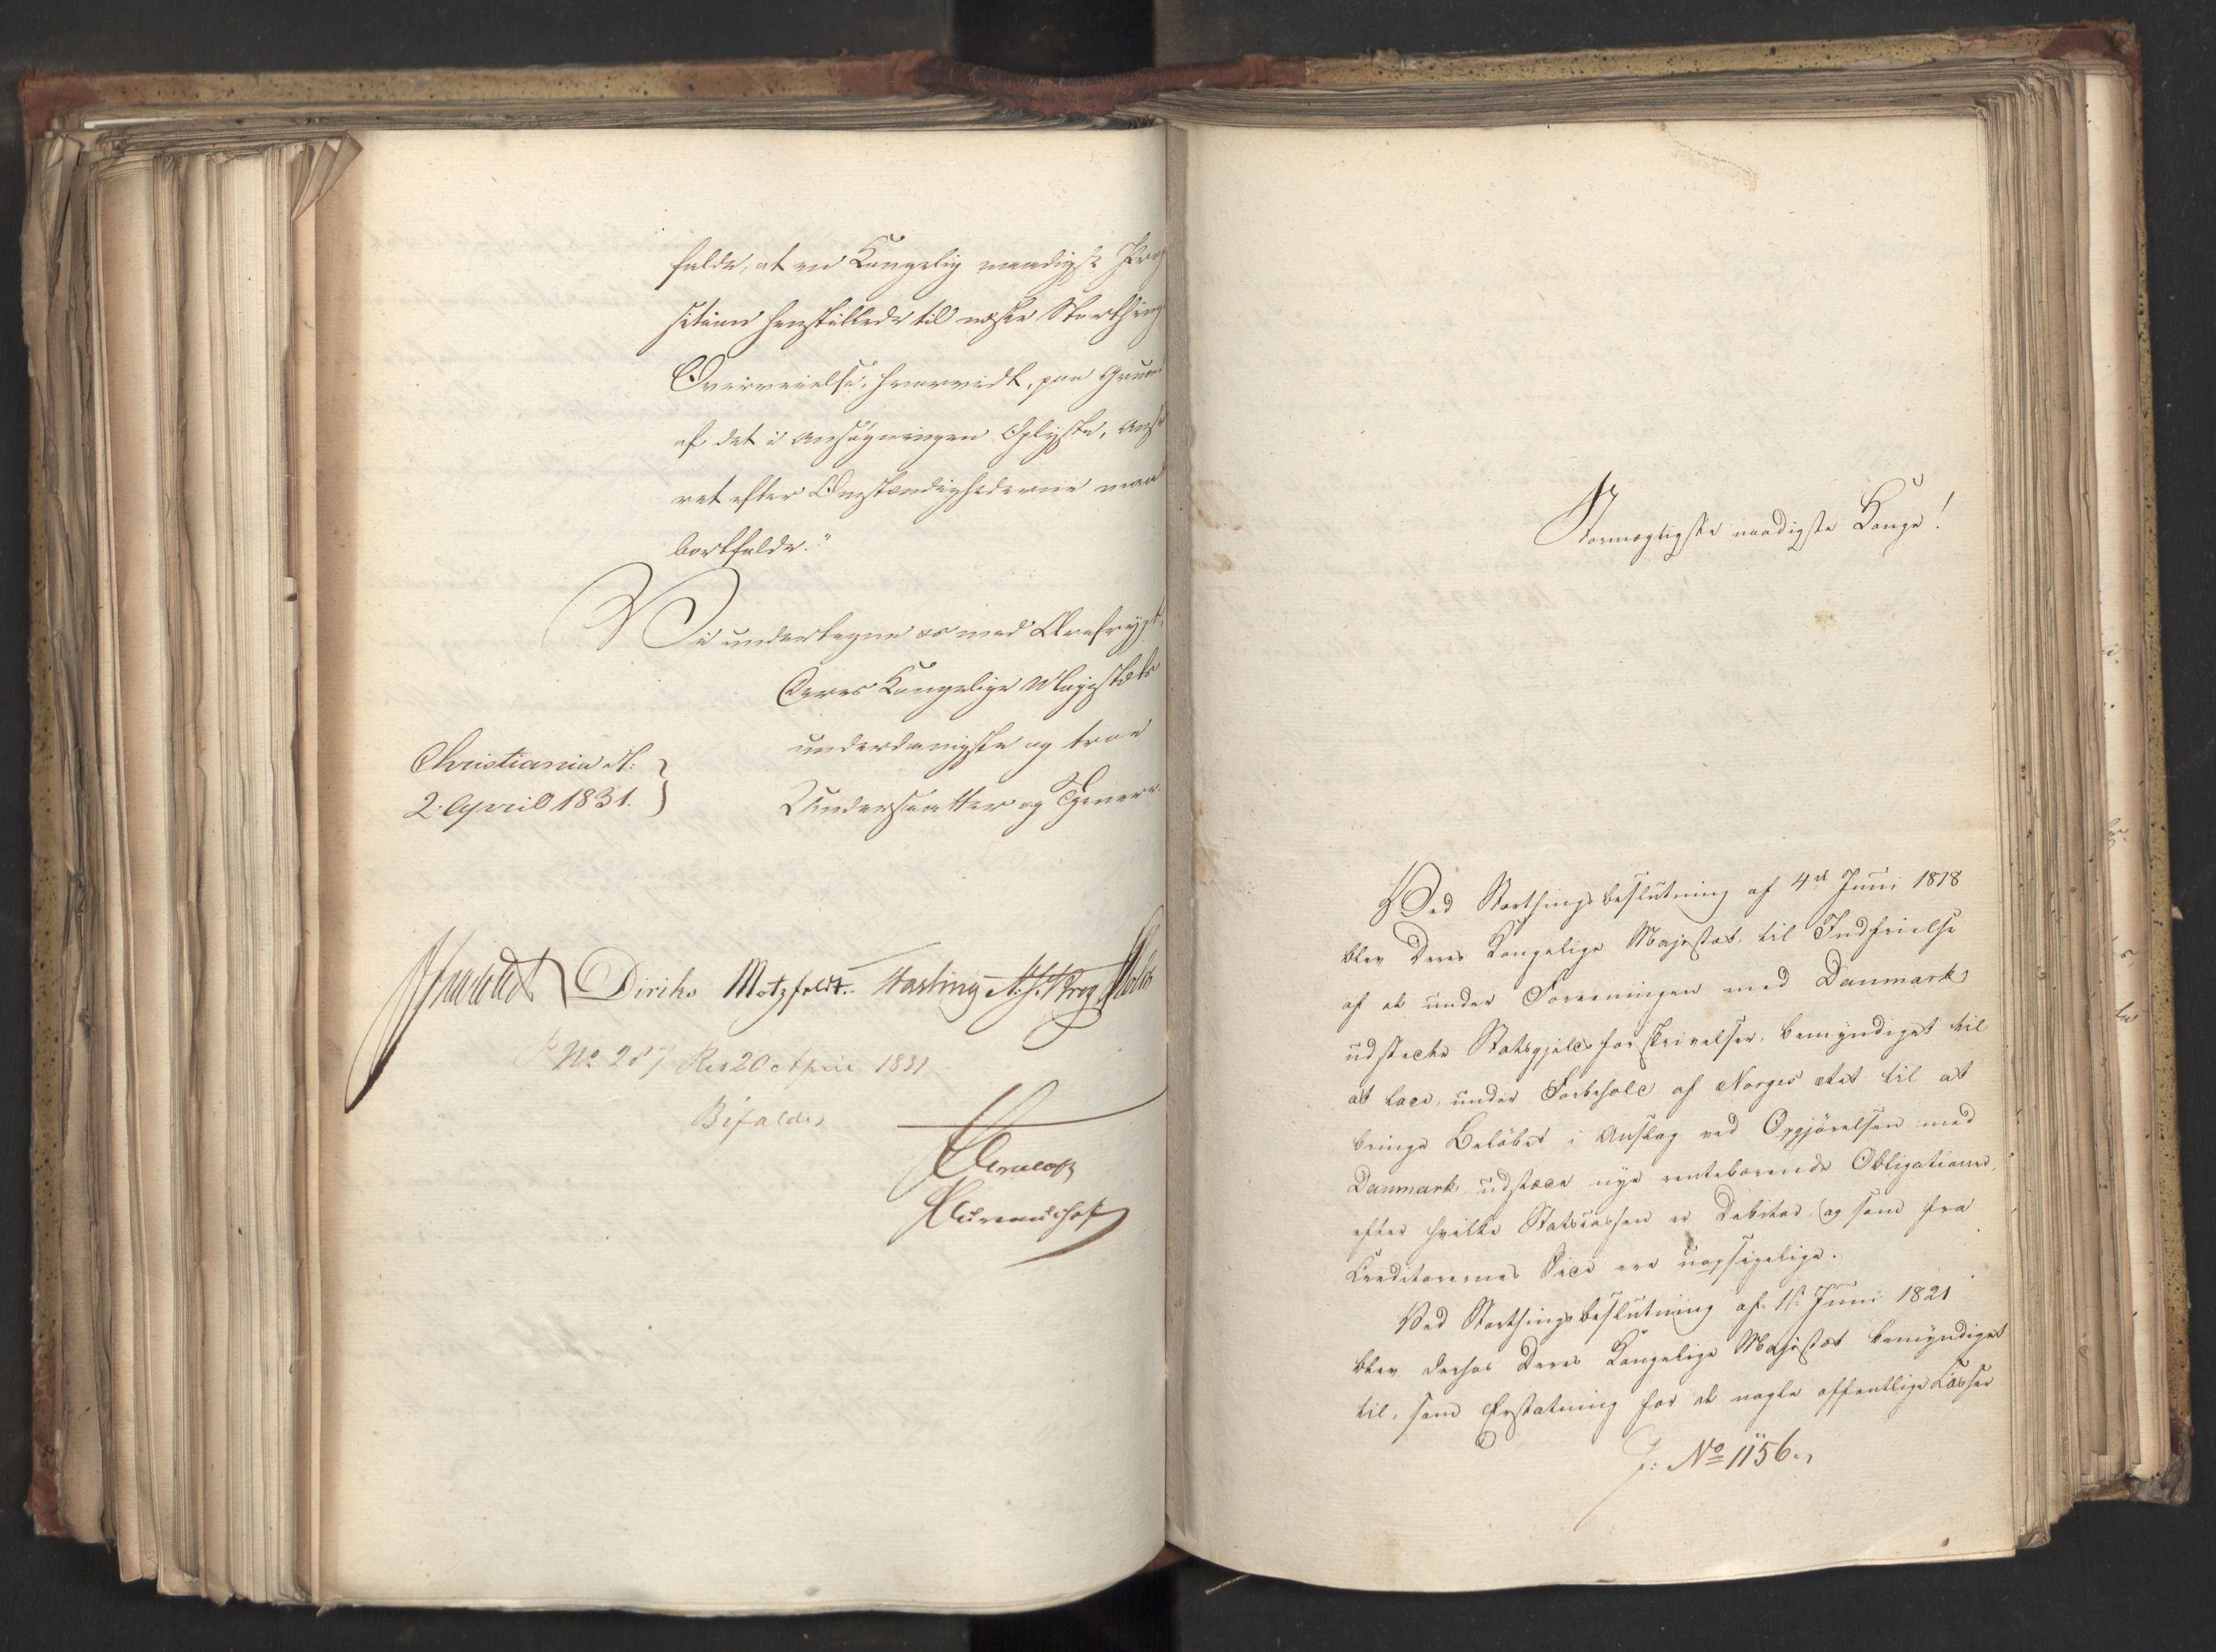 falde, at en Kongelig naadigst Pro
sition henstillede til næste Storthings
Overveielse, hvorvidt, paa Grund
af det i Ansøgningen Oplyste, Ansva
ret efter Omstændighederne maa
bortfalde."
Vi undertegne os med Ærefrygt,
Deres Kongelige Majestæts
underdanigste og troe
Christiania d:
2. April 1831.
Undersaatter og Tjenere
Diriks Motzfeldt. Fasting Krog Holst
No 287 Res 20 April 1831
Bifaldes
Stormægtigste naadigste Konge!
Ved Storthingsbeslutning af 4de Juni 1818
blev Deres Kongelige Majestæt, til Indfrielse
af de under Foreningen med Danmark
udstedte Statsgjeldsforskrivelser, bemyndiget til
at lade, under Forbehold af Norges Ret til at
bringe Beløbet i Anslag ved Opgjørelsen med
Danmark udstæde nye rentebærende Obligationer,
efter hvilke Statscassen er Debitor, og som fra
Creditorernes Side ere uopsigelige.
Ved Storthingsbeslutning af 1ste Juni 1821
blev derhos Deres Kongelige Majestæt bemyndiget
til, som Erstatning for de nogle offentlige Casser
J: No 1156.